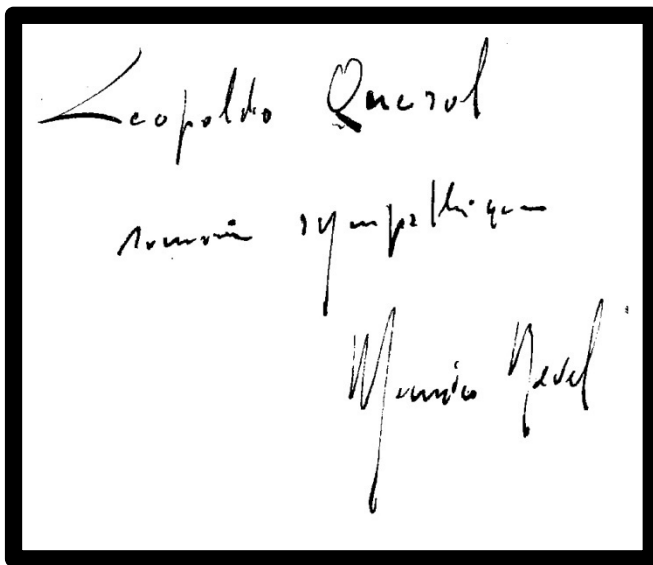 Leopoldo Querol
souvenir sympathique
Maurice Ravel